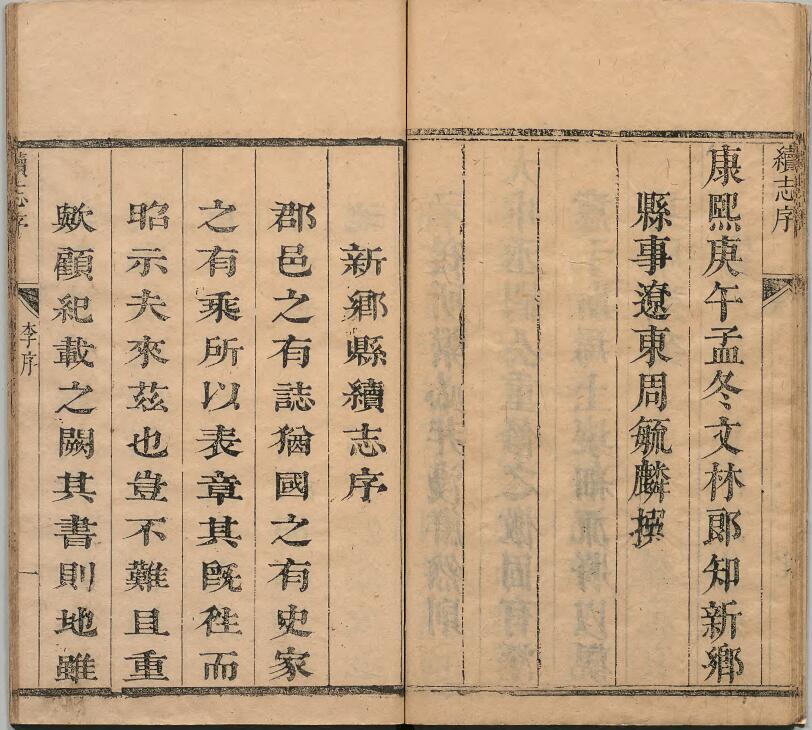 續志序
康熙庚午孟冬文林郎知新鄉
縣事遼東周毓麟撰
新鄉縣續志序
郡邑之有誌猶國之有史家
之有乘所以表章其既徃而
昭示夫來茲也豈不難且重
歟顧紀載之闕其書則地雖
續志序
李序
一